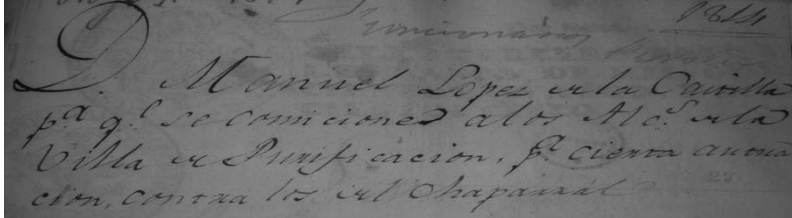 1814
Funcionarios
D. Manuel Lopez de la Cavilla
pa. qe. se comicione a los Alces. de la
Villa de Purificacion, pa. cierta actua
cion, contra los del Chaparral